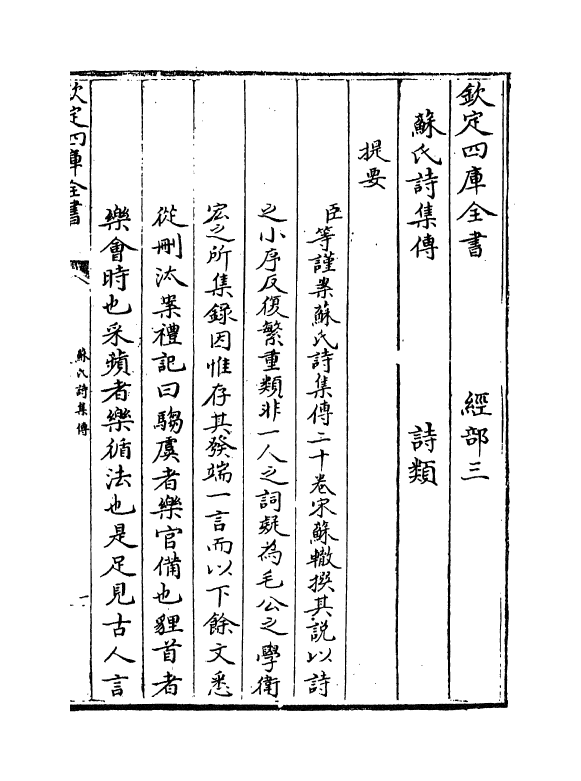 欽定四庫全書　　　　經部三
蘇氏詩集傳　　　　詩類
提要
臣等謹案蘇氏詩集傳二十卷宋蘇轍撰其說以詩
之小序反復繁重類非一人之詞疑為毛公之學衛
宏之所集錄因惟存其發端一言而以下餘文悉
從刪汰案禮記曰騶虞者樂官備也貍首者
樂會時也采蘋者樂循法也是足見古人言
欽定四庫全書　蘇氏詩集傳　一